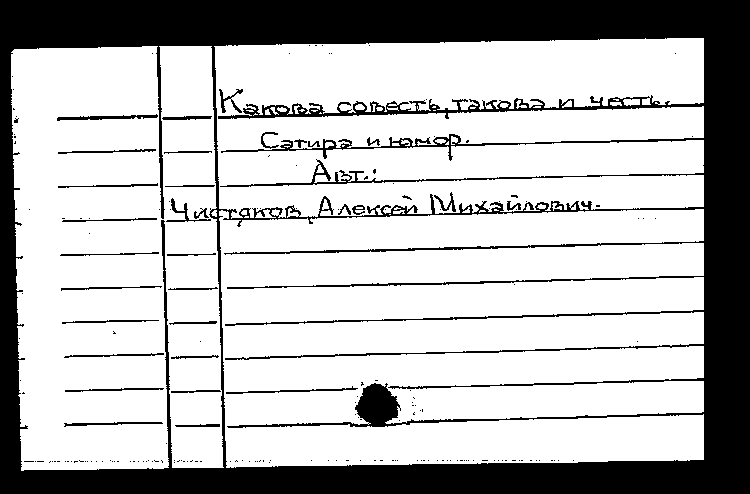 Какова совесть, такова и честь.
Сатира и юмор.
Авт.:
Чистяков, Алексей Михайлович.